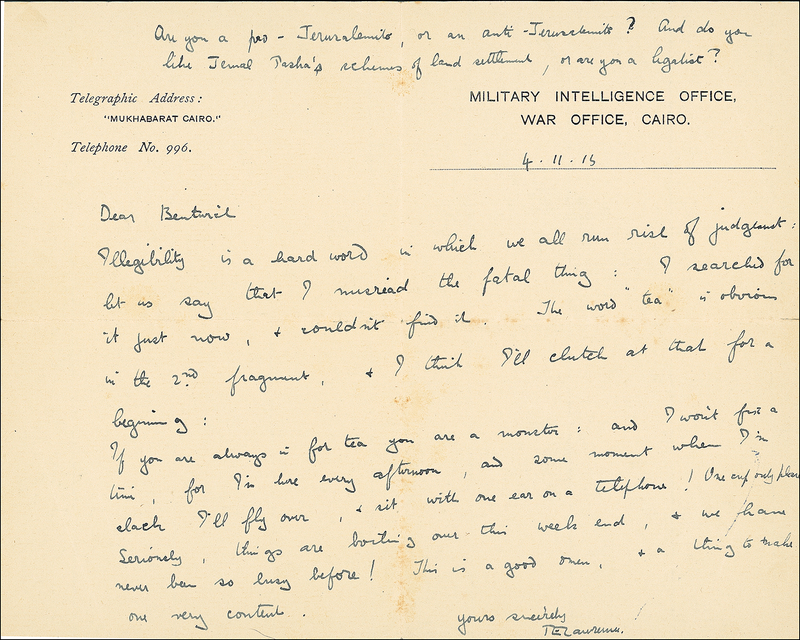 Are you a pro-Jerusalemite, or an anti-Jerusalemite? And do you
like Jemal Pasha's schemes of land settlement, or are you a legalist?
Telegraphic Address:
"MUKHABARAT CAIRO."
Telephone No. 996.
MILITARY INTELLIGENCE OFFICE,
WAR OFFICE, CAIRO.
4.11.15
Dear Bentwich
Illegibility is a hard word in which we all run risk of judgment:
let us say that I misread the fatal thing: I searched for
it just now, & couldn't find it. The word "tea" is obvious
in the 2nd fragment, & I think I'll clutch at that for a
beginning:
If you are always in for tea you are a monster: and I won't fix a
time, for I'm here every afternoon, and some moment when I'm
slack I'll fly over, & sit with one ear on a telephone! One cup only please
Seriously, things are boiling over this week end, & we have
never been so busy before! This is a good omen, & a thing to make
one very content.
yours sincerely
TELawrence.